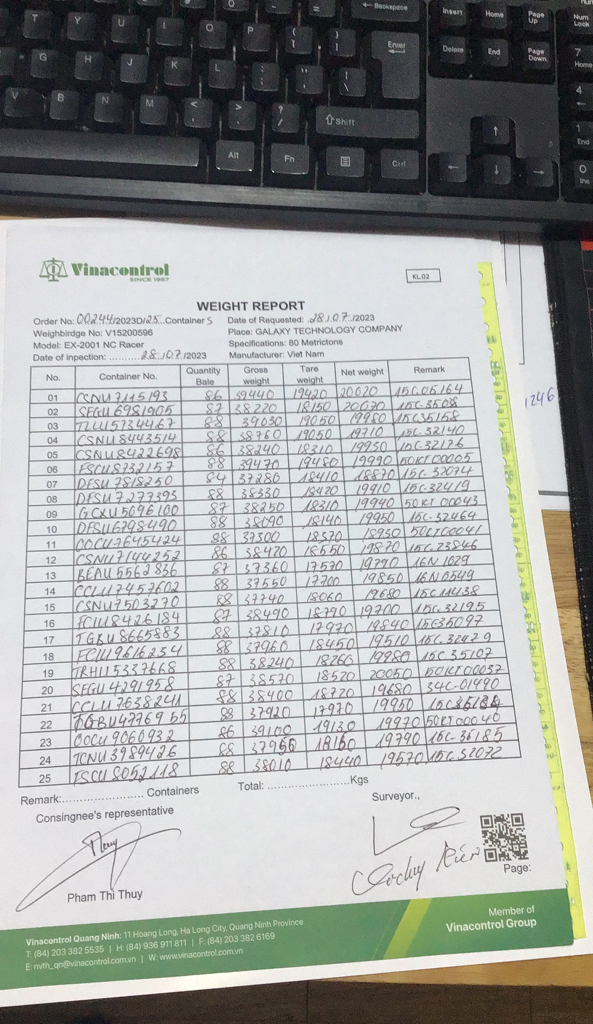 Backspace
Insert
Home
Page Up
Num Lock
T Y U I O P
Enter
Delete
End
Page Down
7 Home
G H J K L
4
V B N M
Shift
1 End
Alt Fn Ctrl
0 Ins
Vinacontrol
SINCE 1957
KL.02
WEIGHT REPORT
Order No: 00244/2023D/25..Containers Date of Requested: 28/07/2023
Weighbirdge No: V15200596 Place: GALAXY TECHNOLOGY COMPANY
Model: EX-2001 NC Racer Specifications: 80 Metrictons
Date of inpection: ..........28/07/2023 Manufacturer: Viet Nam
No. Container No. Quantity Bale Gross weight Tare weight Net weight Remark
01 CSNU7115193 86 39440 19420 20020 15C.06164
02 SEGU6981905 87 38220 18150 20070
03 TLLU5734467 88 39030 19050 19980 15C35158
04 CSNU8443514 88 38760 19050 19710 15C-32140
05 CSNU8422698 86 38240 18310 19930 15C-32176
06 FSCU8732157 88 39470 19480 19990 50RT00005
07 DFSU7818250 84 37280 18410 18870 15C-32074
08 DFSU7277393 88 38330 18420 19910 15C-32419
09 GCXU5096100 87 38250 18310 19940 50RT00043
10 DFSU6798490 88 38090 18140 19950 15C-32464
11 OOCU7645424 88 37300 18370 18930 50RT00041
12 CSNU7144252 86 38420 18550 19870 15C-23846
13 BEAU5562836 87 37360 17570 19790 16N 1029
14 CCLU7457602 88 37550 17700 19850 16N0549
15 CSNU7503270 88 37740 18060 19680 15C11438
16 FCIU8426184 87 38490 18790 19700 15C.32195
17 TGBU8665883 88 37810 17970 19840 15C35097
18 FCIU9616234 88 37960 18450 19510 15C.32479
19 TRHU5337668 88 38240 18260 19980 15C.35107
20 SEGU4291958 87 38570 18520 20050 50RT00037
21 CCLU7638241 88 38400 18720 19680 34C-01990
22 TGBU4776955 88 37920 17970 19950
23 OOCU9060932 86 39100 19130 19970 50RT00040
24 TCNU3989426 88 37950 18160 19790 15C-36185
25 FSCU8052118 88 38010 18440 19570 15C.32072
Remark:........................ Containers Total: ........................Kgs
Consingnee's representative Surveyor.,
Pham Thi Thuy
Page:
Vinacontrol Quang Ninh: 11 Hoang Long, Ha Long City, Quang Ninh Province
T: (84) 203 382 5535 | H: (84) 936 911 811 | F: (84) 203 382 6169
E: nvth_qn@vinacontrol.com.vn | W: www.vinacontrol.com.vn
Member of
Vinacontrol Group
1246